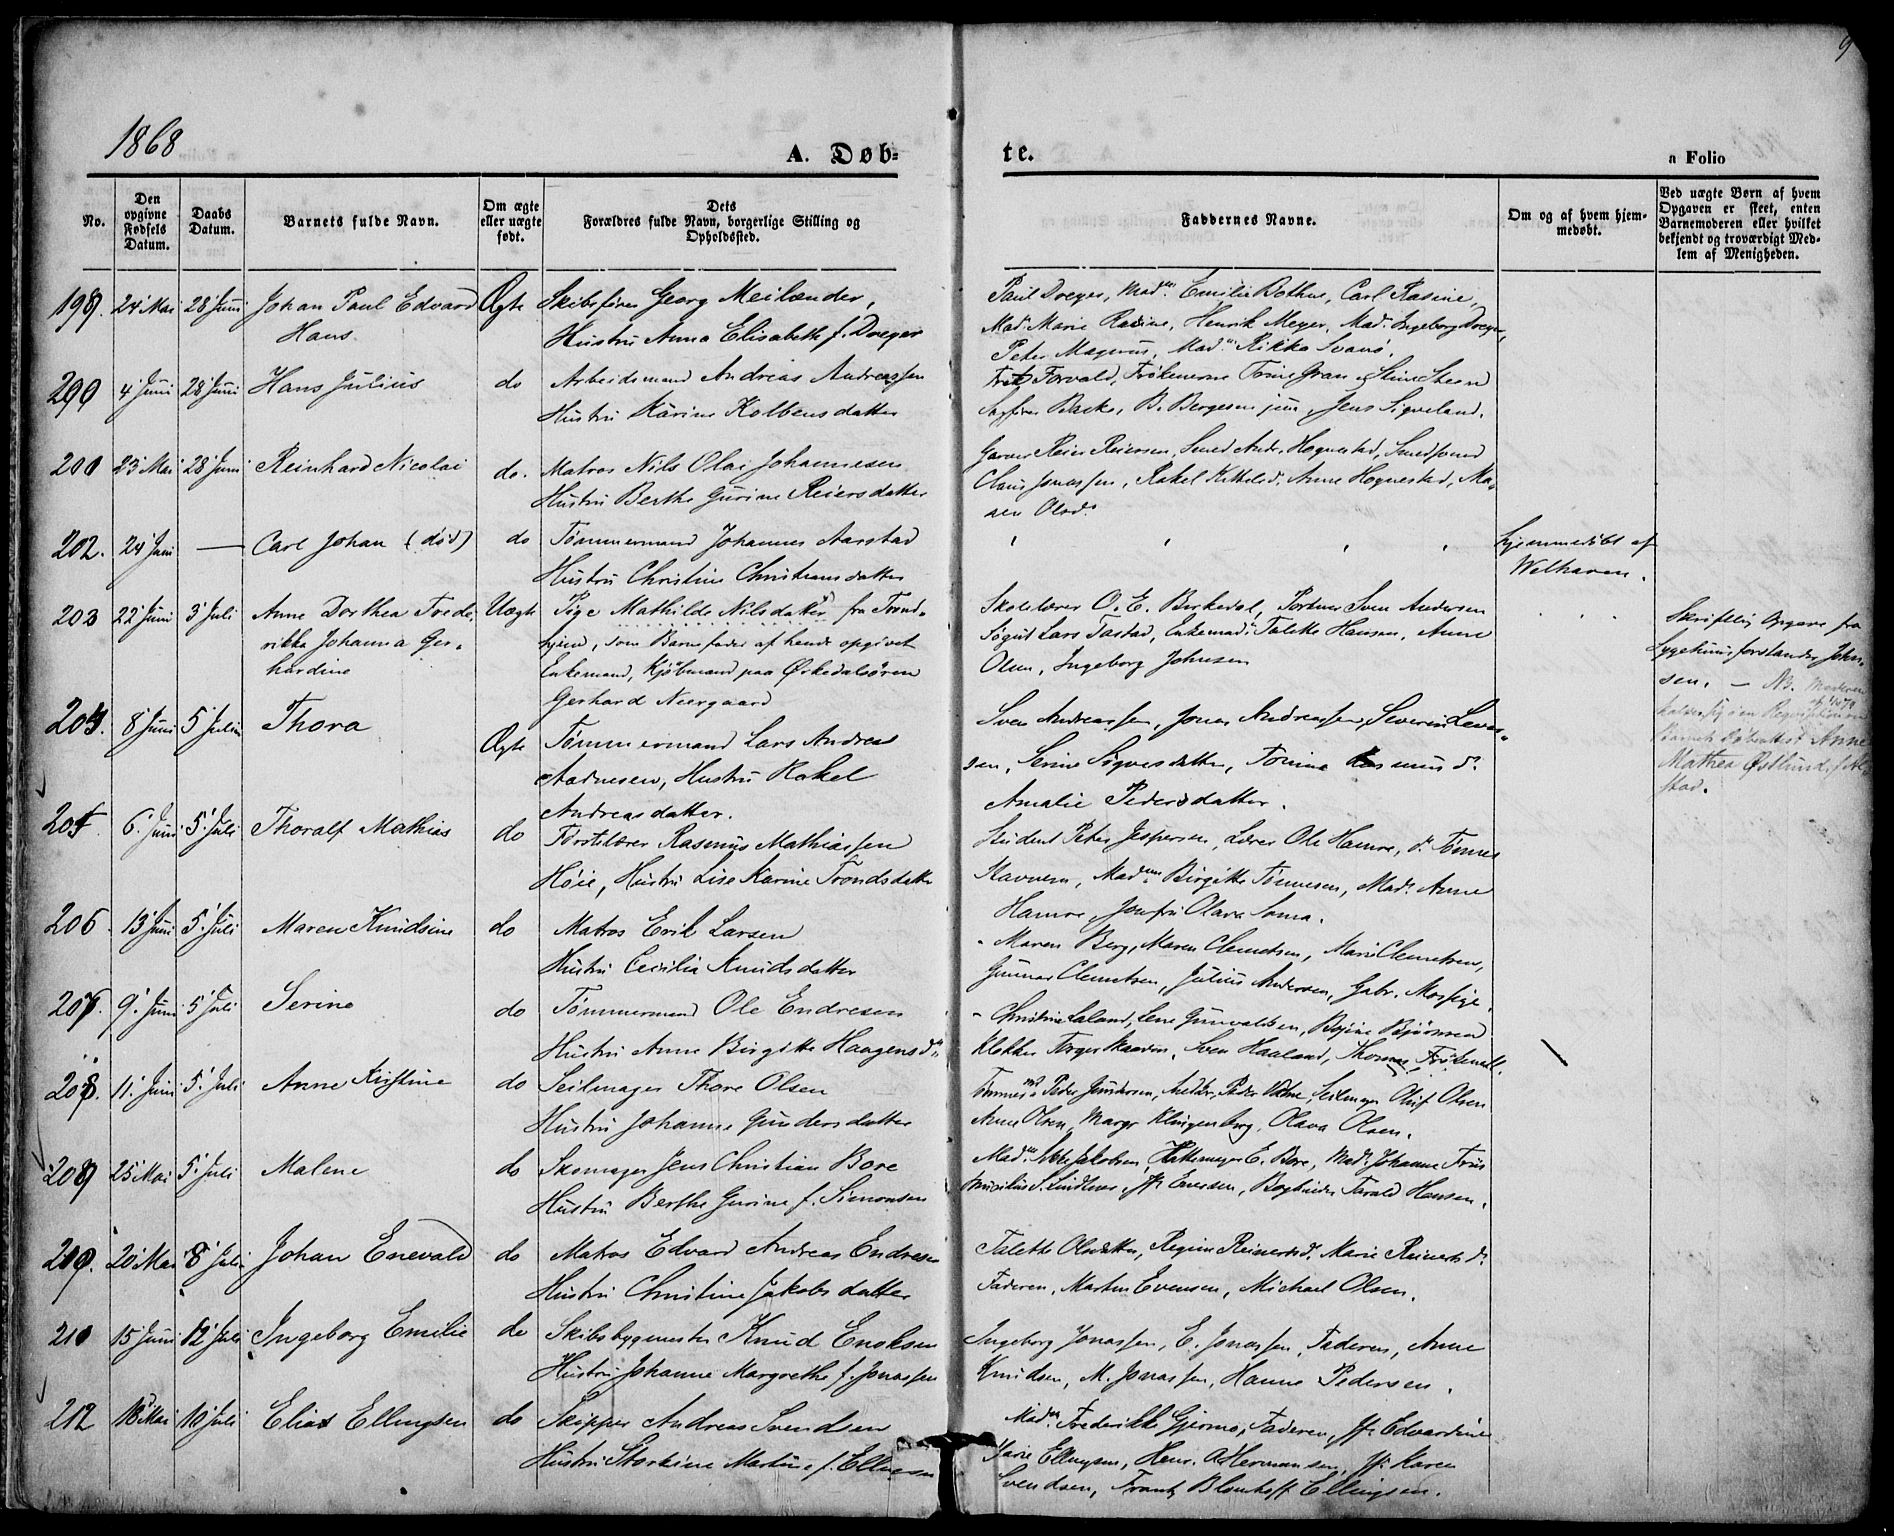 9
1868
A. Døb-
te.
a Folio
No.
Den
opgivne
Fødsels
Datum.
Daabs
Datum.
Barnets fulde Navn.
Om ægte
eller uægte
født.
Dets
Forældres fulde Navn, borgerlige Stilling og
Opholdssted.
Faddernes Navne.
Om og af hvem hjem-
medøbt.
Ved uægte Børn af hvem
Opgaven er skeet, enten
Barnemoderen eller hvilket
bekjendt og troværdigt Med-
lem af Menigheden.
24 Mai 28 Juni Johan Paul Edvard Ægte Skibsfører Georg Meilænder,
Hans Hustru Anna Elisabeth f. Dreyer
Paul Dreyer, Mad.m Emilia Bothne, Carl Rasine,
Mad. Marie Rasine, Henrik Meyer, Mad. Ingeborg Dreyer,
Peter Magnus, Mad.m Rikka Svanø.
4 Juni 28 Juni Hans Julius do Arbeidsmand Andreas Andreassen
Hustru Karine Kolbensdatter
Torvald, Frøkenerne Trine Gran, Stine Steen
Sagfører Backe, B. Bergesen jun, Jens Sigveland.
23 Mai 28 Juni Reinhard Nicolai do. Matros Nils Olai Johannesen
Hustru Berthe Gurine Reiersdatter
Garver Reier Reiersen, Smed Andr. Hognestad,
Claus Jonassen, Rakel Kittelsd. Anne Hognestad, Ma-
ren Olsd.
202. 24 Juni — Carl Johan (død) do Tømmermand Johannes Aarstad
Hustru Christine Christiansdatter
hjemmedøbt af
Welhaven.
203 22 Juni 3 Juli Anne Dorthea Frede- Uægte Pige Mathilde Nilsdatter fra Trond-
rikka Johanna Ger- hjem, som Barnefader af hende opgivet
hardine Enkemand, Kjøbmand paa Ørkedalsøren
Gerhard Neergaard
Skolelærer O. E. Birkedal, Portner Sven Andersen
Søgut Lars Tastad, Enkemad. Talette Hansen, Anne
Olsen, Ingeborg Johnsen
Skriftlig Opgave fra
Sygehuusforstander John-
sen. — NB. Moderen
Anne
Mathea Østlund,
8 Juni 5 Juli Thora Ægte Tømmermand Lars Andreas
Aadnesen, Hustru Rakel
Andreasdatter.
Sven Andreassen, Jonas Andreassen, Severin Lar-
sen, Serine Sigvesdatter, Tonine Rasmusd.
Amalie Pedersdatter.
205 6. Juni 5. Juli Thoralf Mathias do Førstelærer Rasmus Mathiassen
Høie, Hustru Lise Karine Trondsdatter
Student Peter Jespersen, Lærer Ole Hamre, d. Tønnes
Stavnem, Mad.m Birgitte Tønnesen, Mad. Anne
Hamre, Jomfru Olava Soma.
206 13 Juni 5. Juli Maren Knudsine do Matros Erik Larsen
Hustru Cecilia Knudsdatter
Maren Berg, Maren Clemetsen, Marie Clemetsen,
Gunnar Clemetsen, Julius Andersen, Gabr. Mossige.
207. 9. Juni 5 Juli Serine do Tømmermand Ole Endresen
Hustru Anne Birgitte Haagensd.
Christine Laland, Lene Gunvaldsen, Bojine Bjørnsen
Klokker Torger Skaaden, Sven Haaland, Thomas
208. 11. Juni 5. Juli Anne Kristine do Seilmager Thore Olsen
Hustru Johanne Gundersdatter
Peder Gundersen, Peder Seilmager Oluf Olsen
Anne Olsen, Margr. Klingenberg, Olava Olsen.
209 25 Mai 5. Juli Malene do Skomager Jens Christian Bore
Hustru Berthe Gurine f. Simonsen
Mad.m Jakobsen, Hattemager E. Bore, Mad. Johanne Friis
S. Lindtner, Jfr. Enersen, Bogbinder Tarald Hansen.
20 Mai 8 Juli Johan Enevald do Matros Edvard Andreas Endresen
Hustru Christine Jakobsdatter
Talette Olsdatter, Regine Reinertsd. Marie Reinertsd.
Faderen, Morten Evensen, Michael Olsen.
15 Juni 12 Juli Ingeborg Emilie do Skibsbygmester Knud Enoksen
Hustru Johanne Margrethe f. Jonassen
Ingeborg Jonassen, E. Jonassen, Faderen, Anne
Knudsen, M. Jonassen, Hanne Pedersen.
212 18 Mai 10 Juli Elias Ellingsen do Skipper Andreas Svendsen
Hustru Storkine Martine f. Ellingsen
Mad.m Frederikke Gjerme, Faderen, Jfr. Edvardine
Marie Ellingsen, Henr. A. Hermansen, Jfr. Karen
Svendsen, Frantz Blomhoff Ellingsen.